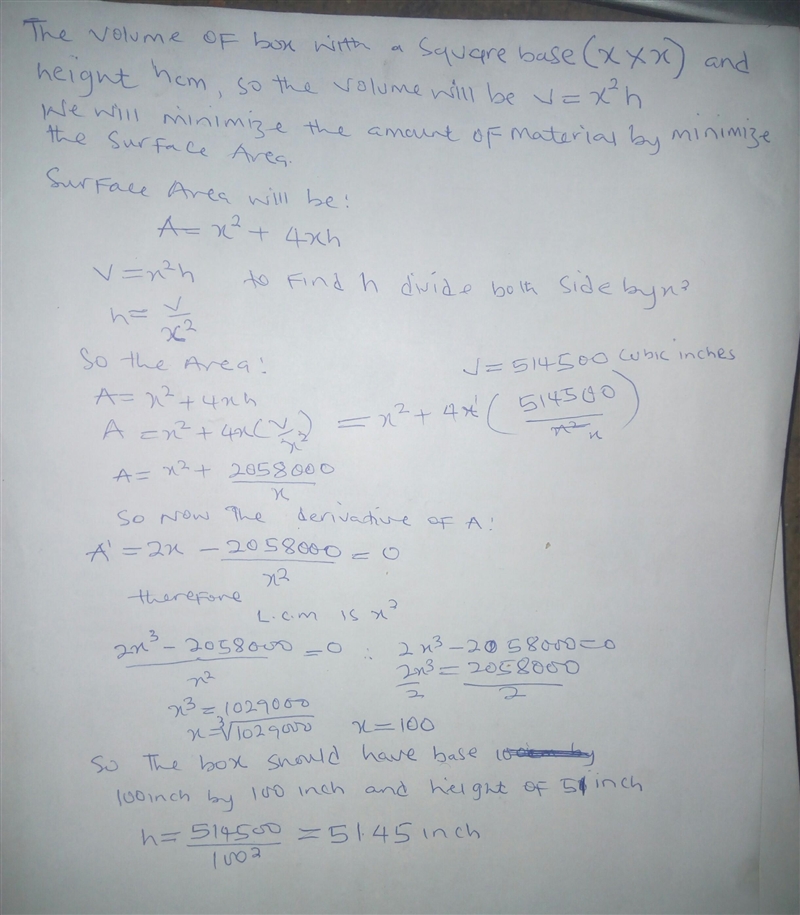 The volume of box with a square base (x × x) and
height hcm, so the volume will be v = x²h
We will minimize the amount of material by minimize
the surface Area.
Surface Area will be:
A = x² + 4xh
V = x²h to find h divide both side by x²
h = v/x²
So the Area: V = 514500 cubic inches
A = x² + 4xh
A = x² + 4x(v/x²) = x² + 4x(514500/x² x)
A = x² + 2058000/x
So Now The derivative of A:
A' = 2x - 2058000/x² = 0
therefore L.c.m is x²
2x³ - 2058000/x² = 0 : 2x³ - 2058000 = 0
2x³/2 = 2058000/2
x³ = 1029000
x = ∛1029000 x = 100
So The box should have base
100 inch by 100 inch and height of 51 inch
h = 514500/100² = 51.45 inch